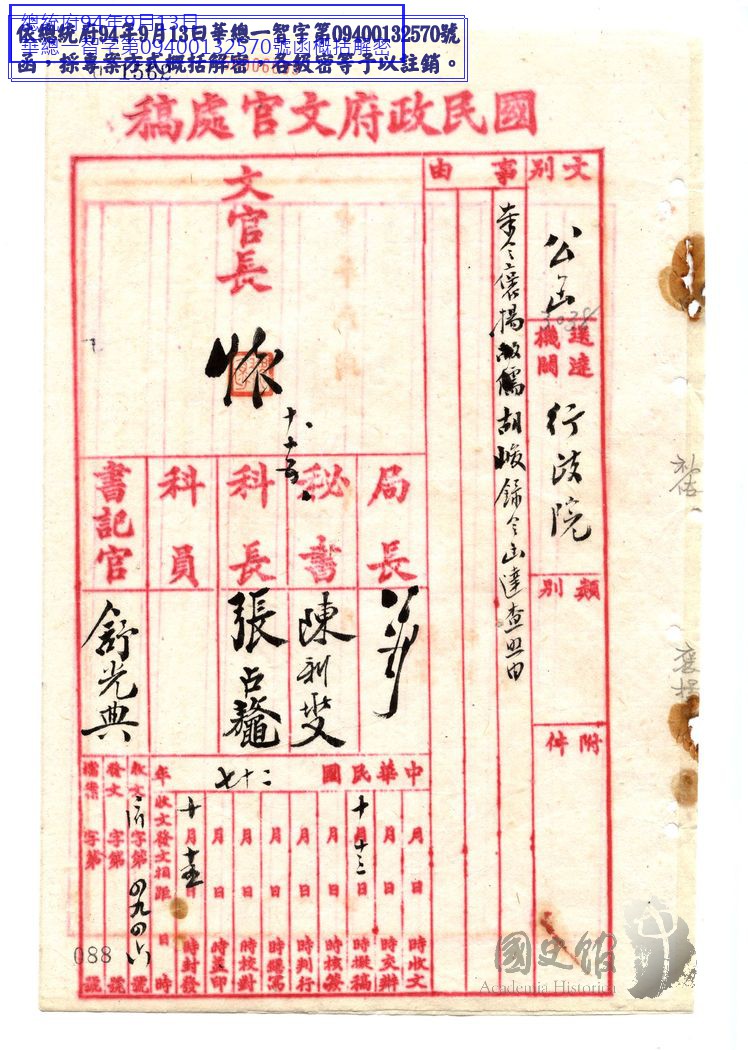 總統府94年9月13日
華總一智字第09400132570號函概括解密
依總統府94年9月13日華總一智字第09400132570號
函，採專案方式概括解密，各級密等予以註銷。
國民政府文官處稿
文別
公函
送達機關
行政院
類別
附件
事由
奉令褒揚故儒胡峻錄令函達查照由
文官長
十、十五、
局長
秘書
陳利燮
科長
張占鰲
科員
書記官
舒光典
中華民國
年
月 日 時收文
月 日 時交辦
十月十三日 時擬稿
月 日 時核簽
月 日 時判行
月 日 時繕寫
月 日 時校對
月 日 時蓋印
十月十五日 時封發
收文發文相距 日 時
收文 字第四九四六號
發文 字第 號
檔案 字第 號
088
國史館
Academia Historica